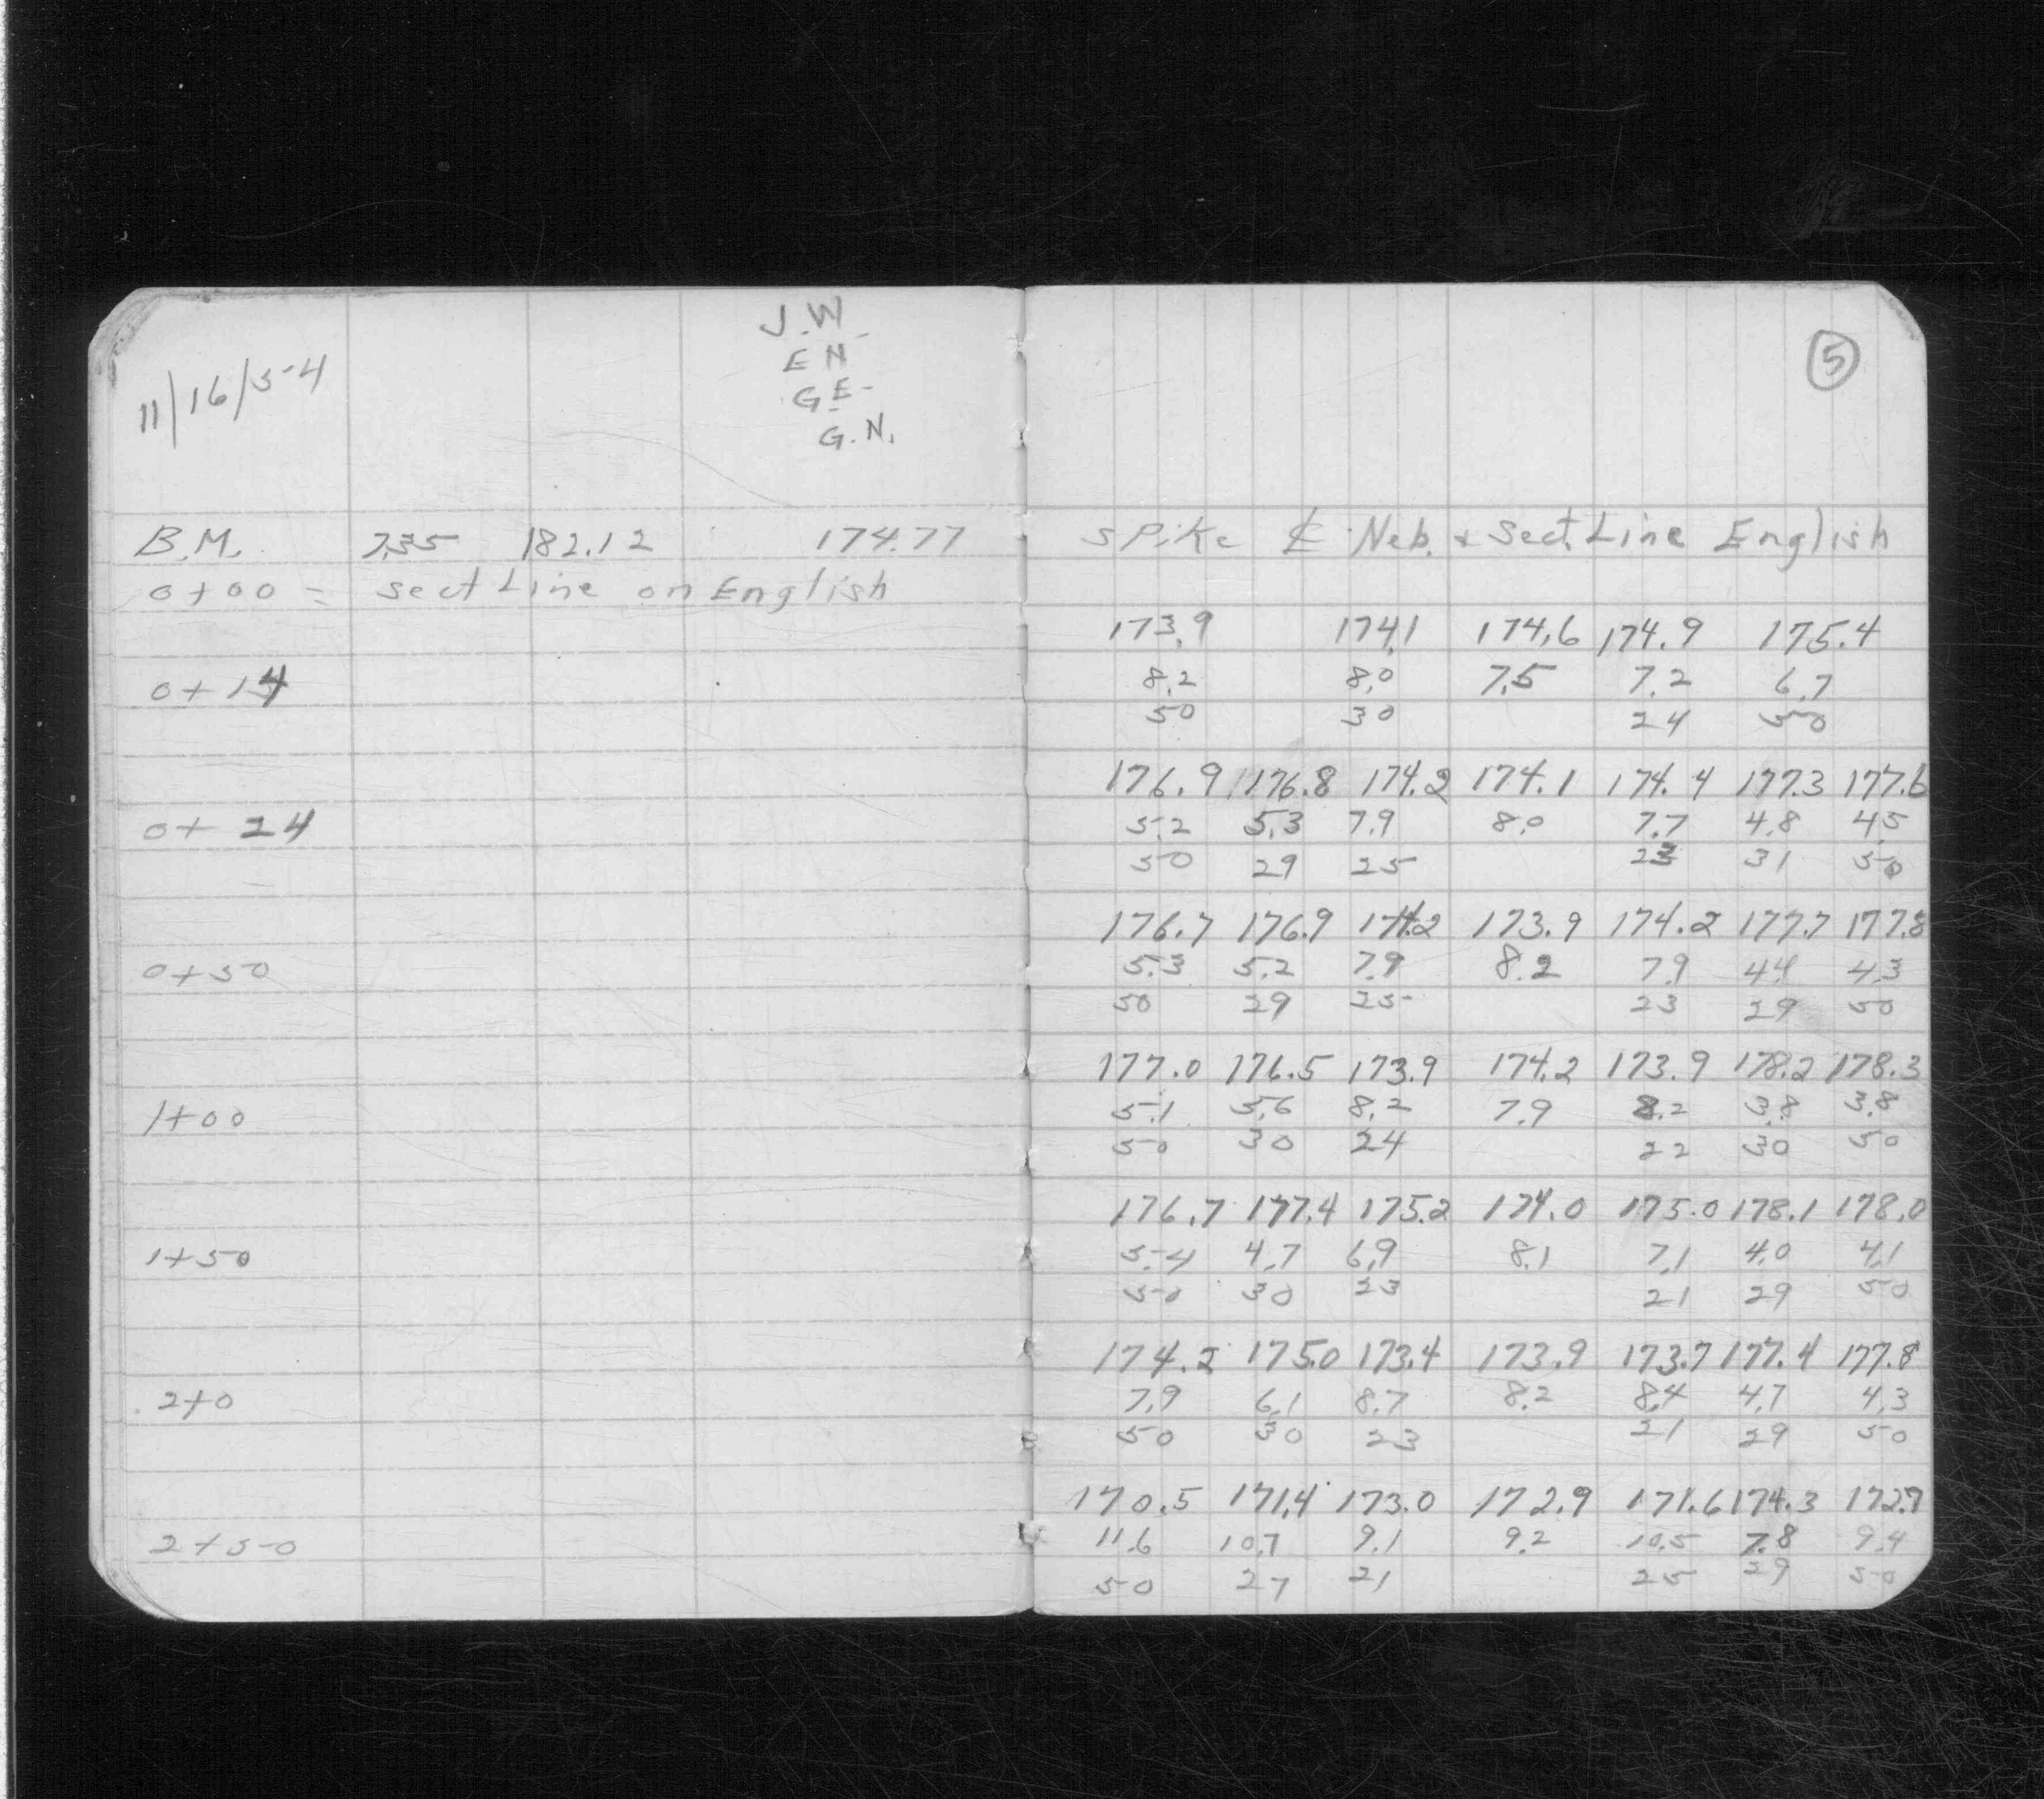 11/16/54
J.W.
E N
G.E.
G.N.
B.M. 7.35 182.12 174.77
0+00 = sect Line on English
0+14
0+24
0+50
1+00
1+50
2+0
2+50
5
sPiKe ℄ Neb. & Sect. Line English
173.9 174.1 174.6 174.9 175.4
8.2 8.0 7.5 7.2 6.7
50 30 24 50
176.9 176.8 174.2 174.1 174.4 177.3 177.6
5.2 5.3 7.9 8.0 7.7 4.8 4.5
50 29 25 23 31 50
176.7 176.9 174.2 173.9 174.2 177.7 177.8
5.3 5.2 7.9 8.2 7.9 4.4 4.3
50 29 25 23 29 50
177.0 176.5 173.9 174.2 173.9 178.2 178.3
5.1 5.6 8.2 7.9 8.2 3.8 3.8
50 30 24 22 30 50
176.7 177.4 175.2 174.0 175.0 178.1 178.0
5.4 4.7 6.9 8.1 7.1 4.0 4.1
50 30 23 21 29 50
174.2 175.0 173.4 173.9 173.7 177.4 177.8
7.9 6.1 8.7 8.2 8.4 4.7 4.3
50 30 23 21 29 50
170.5 171.4 173.0 172.9 171.6 174.3 172.7
11.6 10.7 9.1 9.2 10.5 7.8 9.4
50 27 21 25 29 50